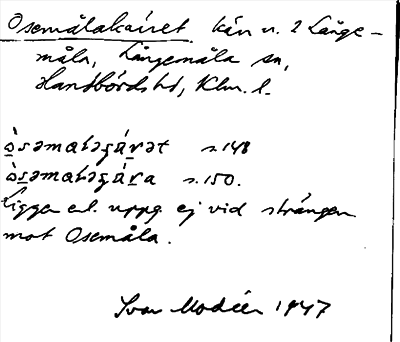 Osemålakärret kärr n. 2 Långe-
måla, Långemåla sn,
Handbörds hd, Klm. l.
ò̲s̲əmaƚəɡá̲r̲ət s. 148
ò̲s̲əmaƚəɡá̲r̲a s. 150.
Ligger enl. uppg. ej vid strängen
mot Osemåla.
Ivar Modéer 1947